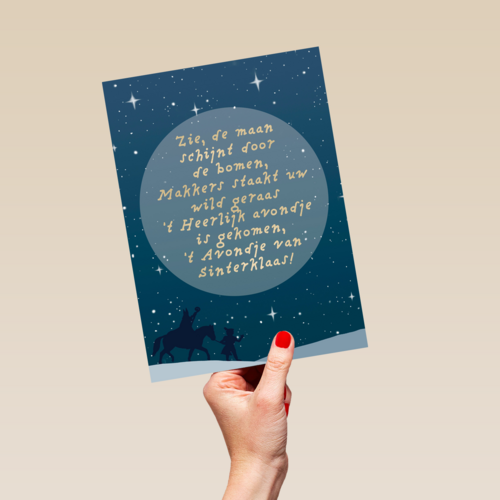 Zie, de maan
schijnt door
de bomen,
Makkers staakt uw
wild geraas
't Heerlijk avondje
is gekomen,
't Avondje van
Sinterklaas!